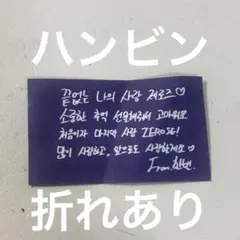 ハンビン
끝없는 나의 사랑 제로즈♡
소중한 추억 선물해줘서 고마워요
처음이자 마지막 사랑 ZEROSE!
많이 사랑하고, 앞으로도 사랑할게요♡
From. 한빈.
折れあり